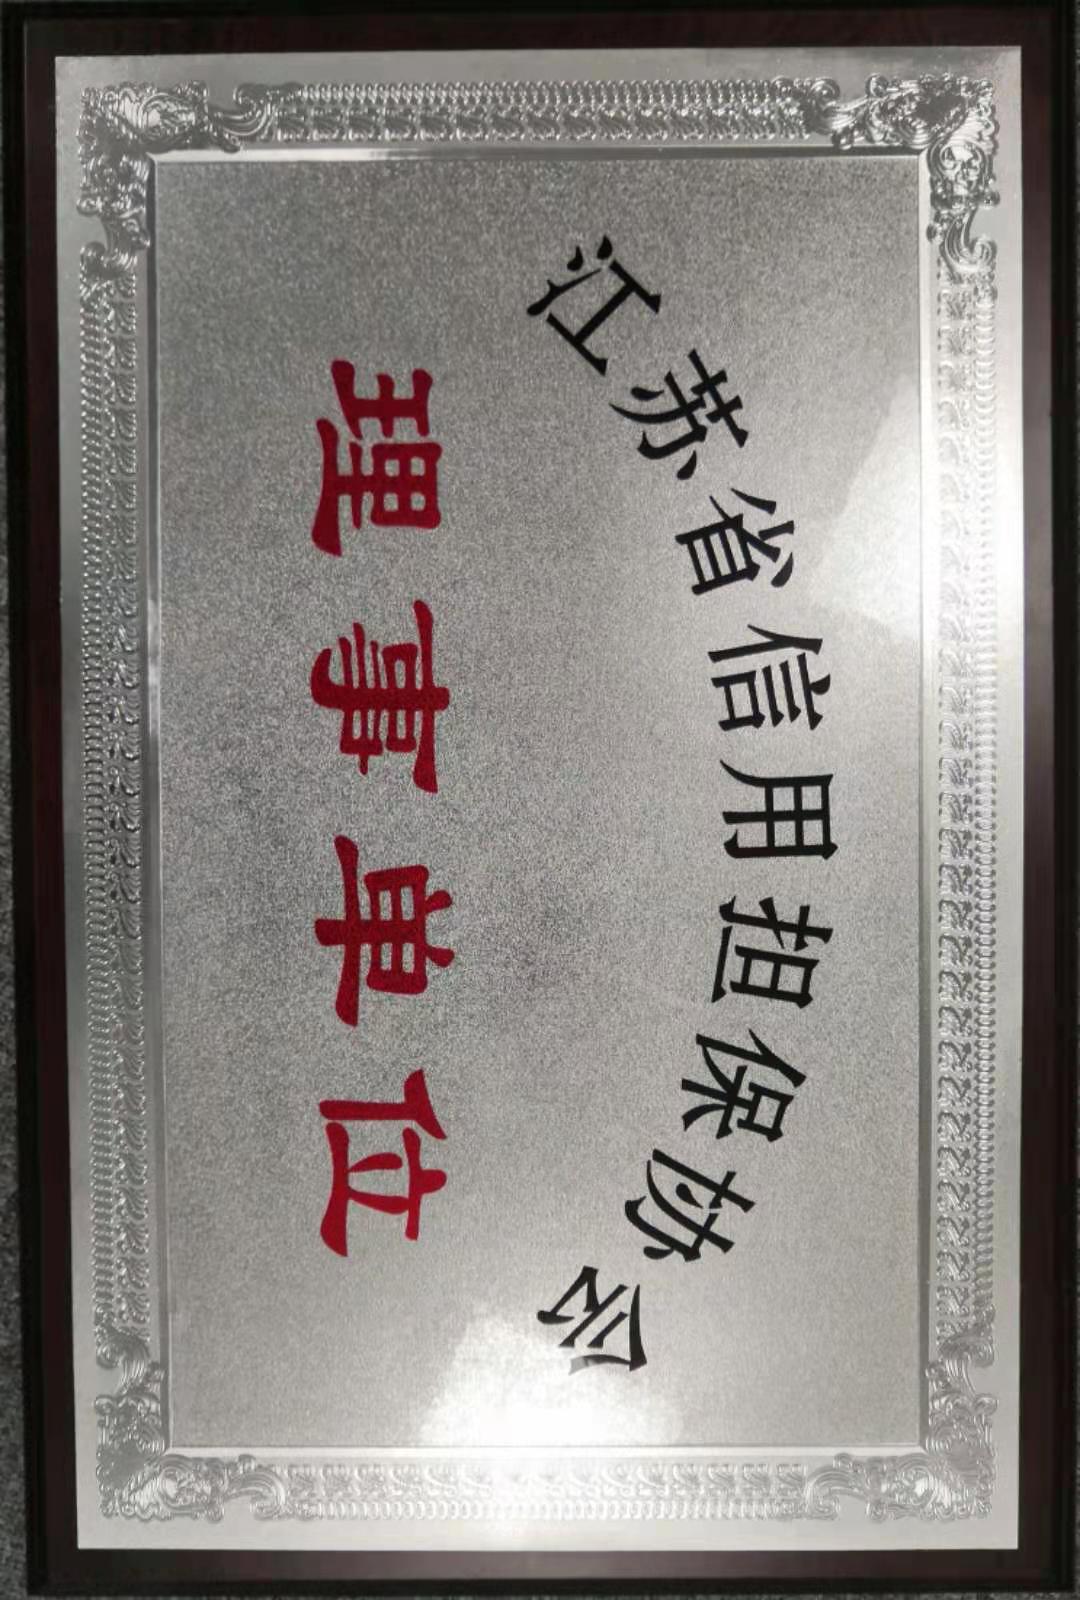 江苏省信用担保协会
理事单位